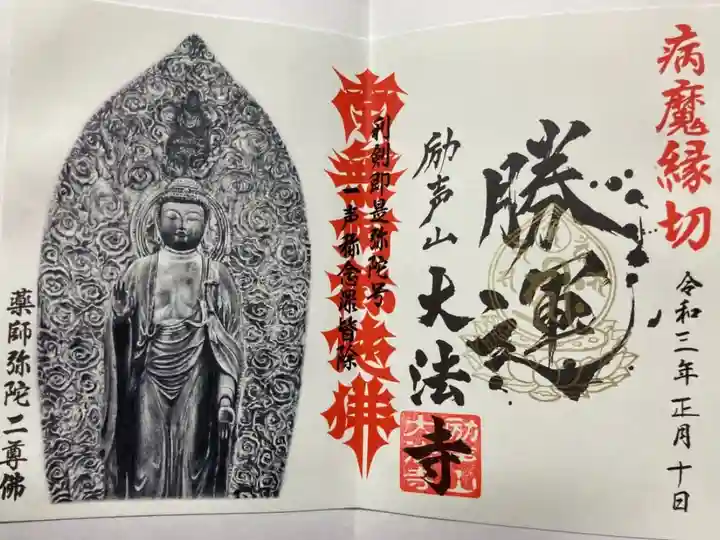 病魔縁切
令和三年正月十日
勝運
励声山
大法寺
南無阿弥陀佛
利剣即是弥陀号
一声称念罪皆除
薬師弥陀二尊佛